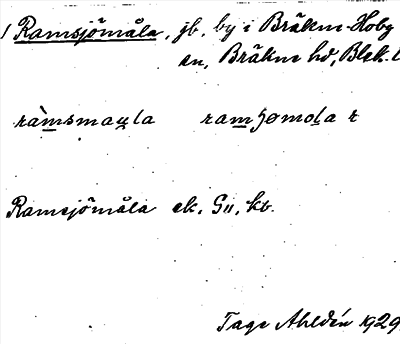 1 Ramsjömåla, jb, by i Bräkne-Hoby
sn, Bräkne hd, Blek. l
ràmsmaula ramʃomola r
Ramsjömåla ek. G11, kb.
Tage Ahldén 1929